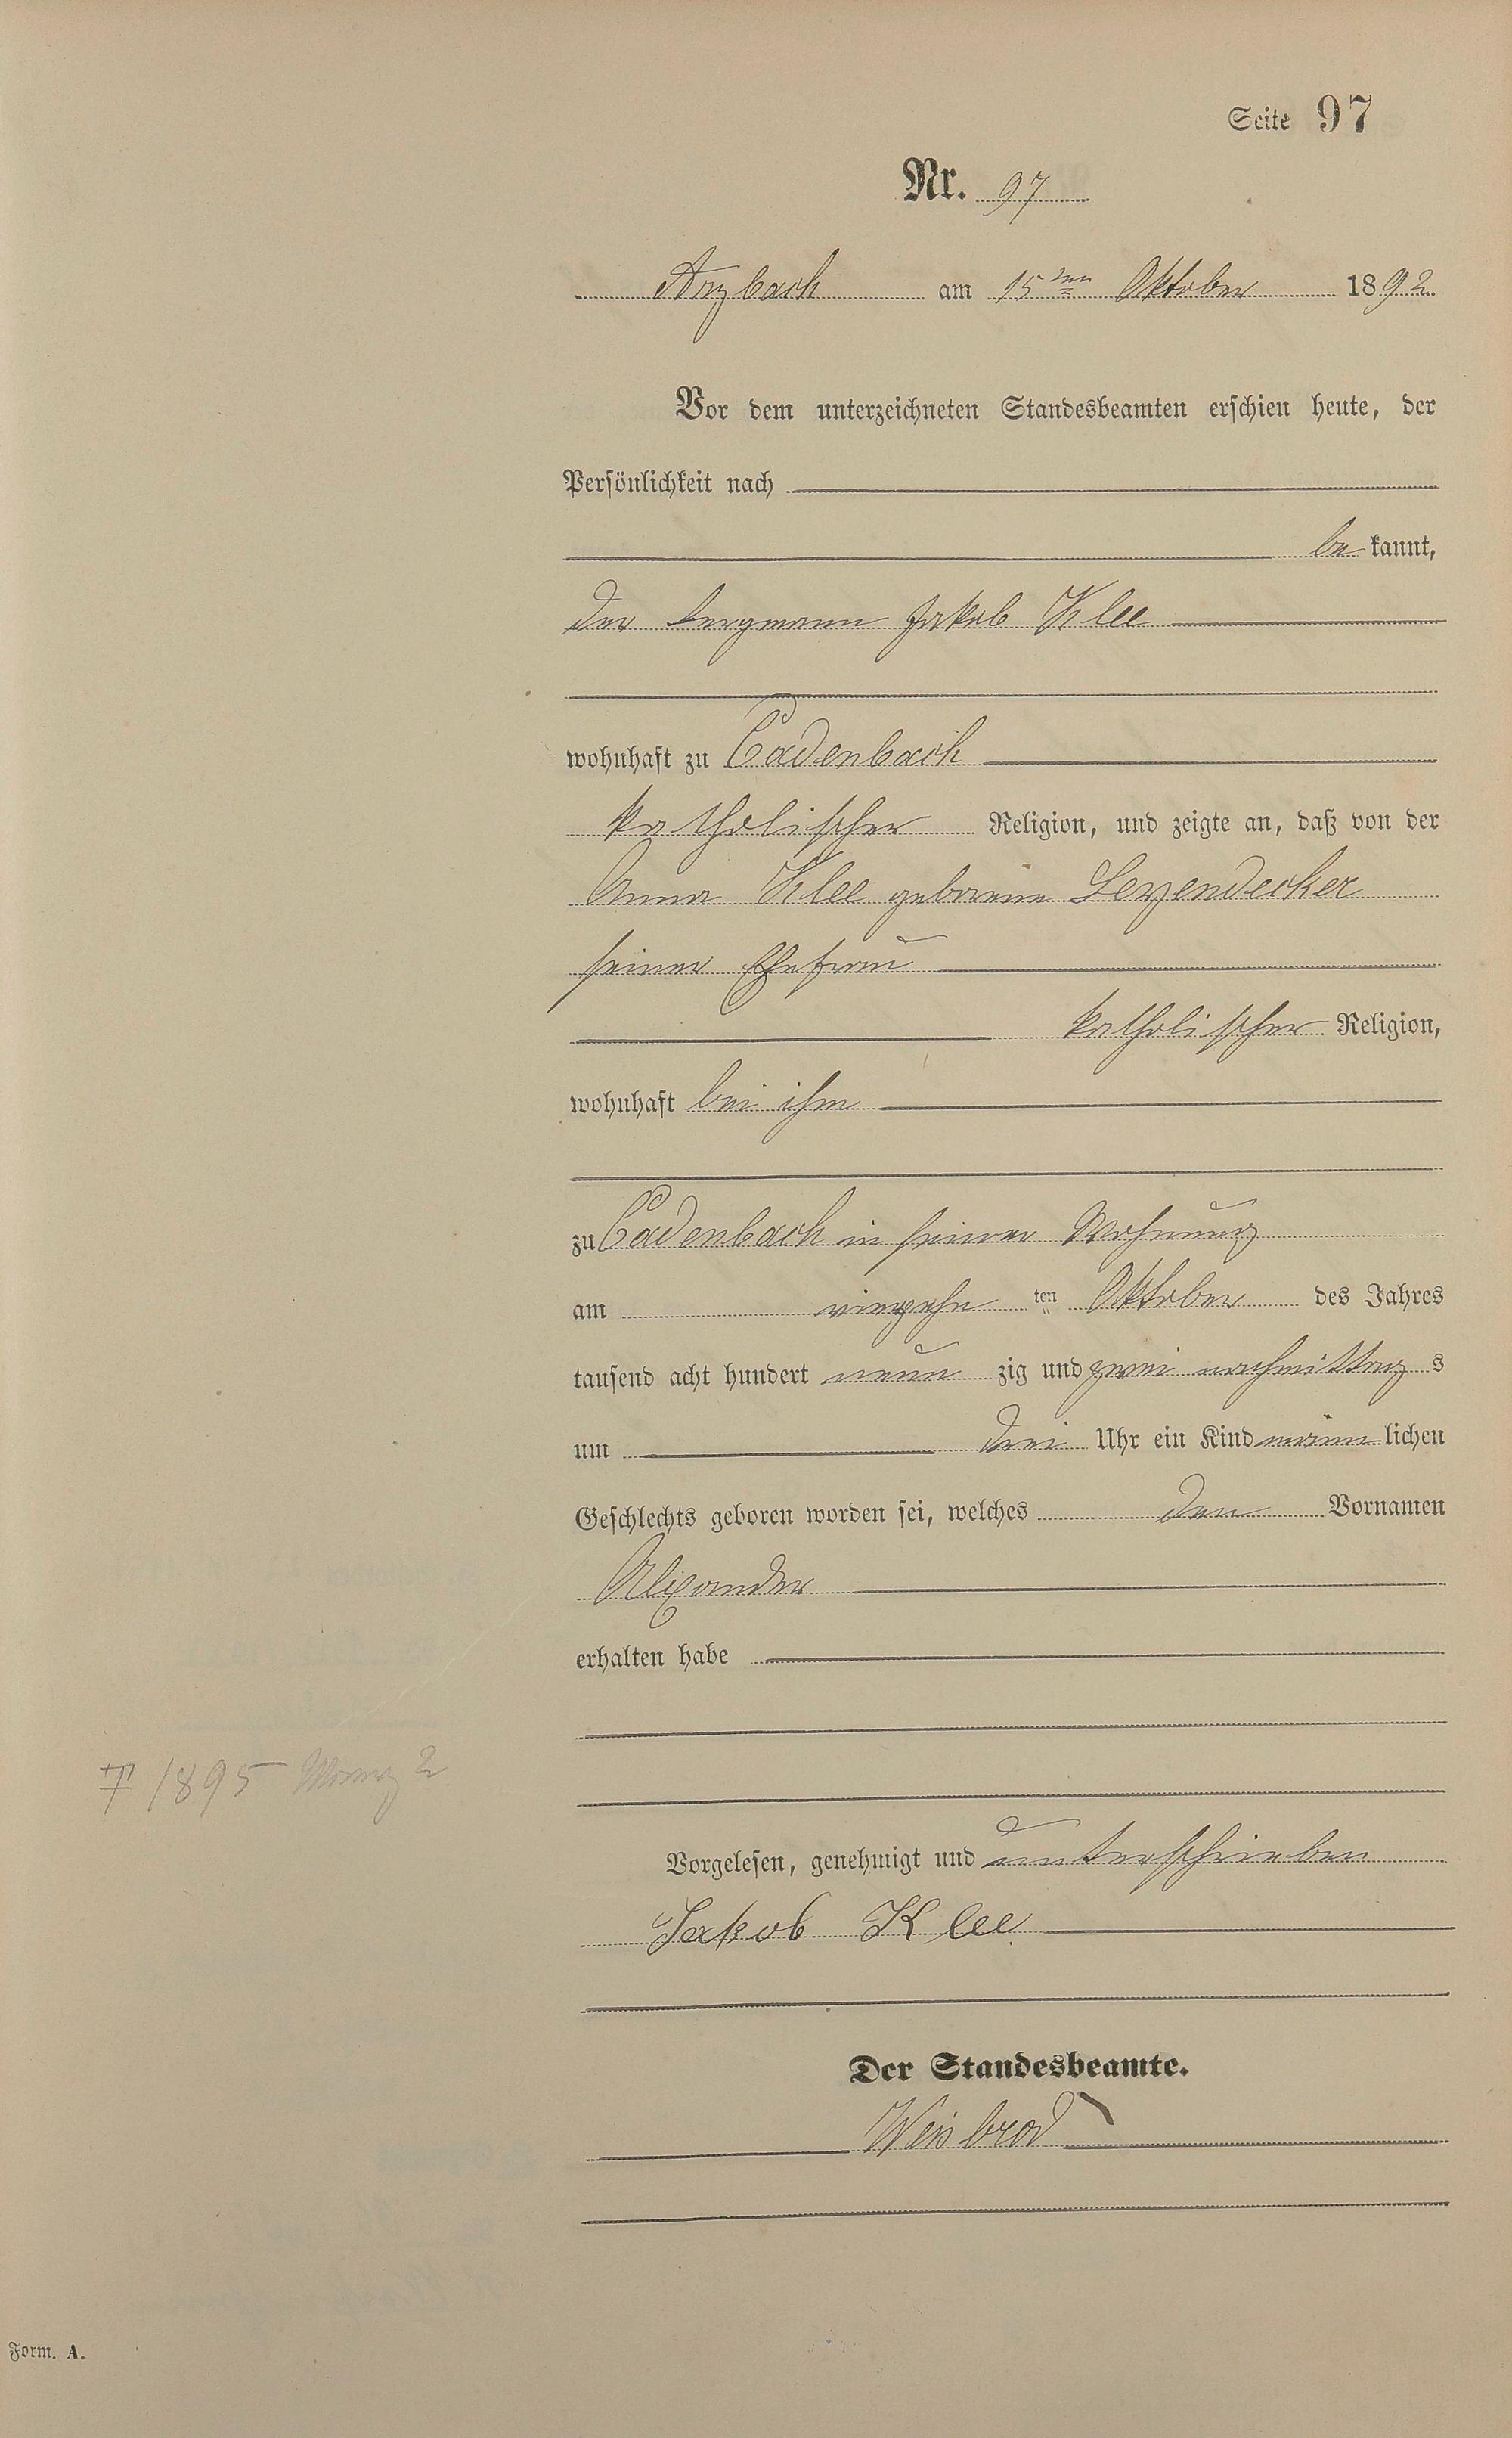 Seite 97
Nr. 97
Arzbach am 15ten Oktober 1892.
Vor dem unterzeichneten Standesbeamten erschien heute, der
Persönlichkeit nach
be kannt,
der Bergmann Jakob Klee
wohnhaft zu Cadenbach
katholischer Religion, und zeigte an, daß von der
Anna Klee geborene Leyendecker
seiner Ehefrau
katholischer Religion,
wohnhaft bei ihm
zu Cadenbach in seiner Wohnung
am vierzehn ten Oktober des Jahres
tausend acht hundert neun zig und zwei nachmittag s
um drei Uhr ein Kind männ lichen
Geschlechts geboren worden sei, welches den Vornamen
Alexander
erhalten habe
† 1895
Vorgelesen, genehmigt und unterschrieben
Jakob Klee
Der Standesbeamte.
Weisbrod
Form. A.